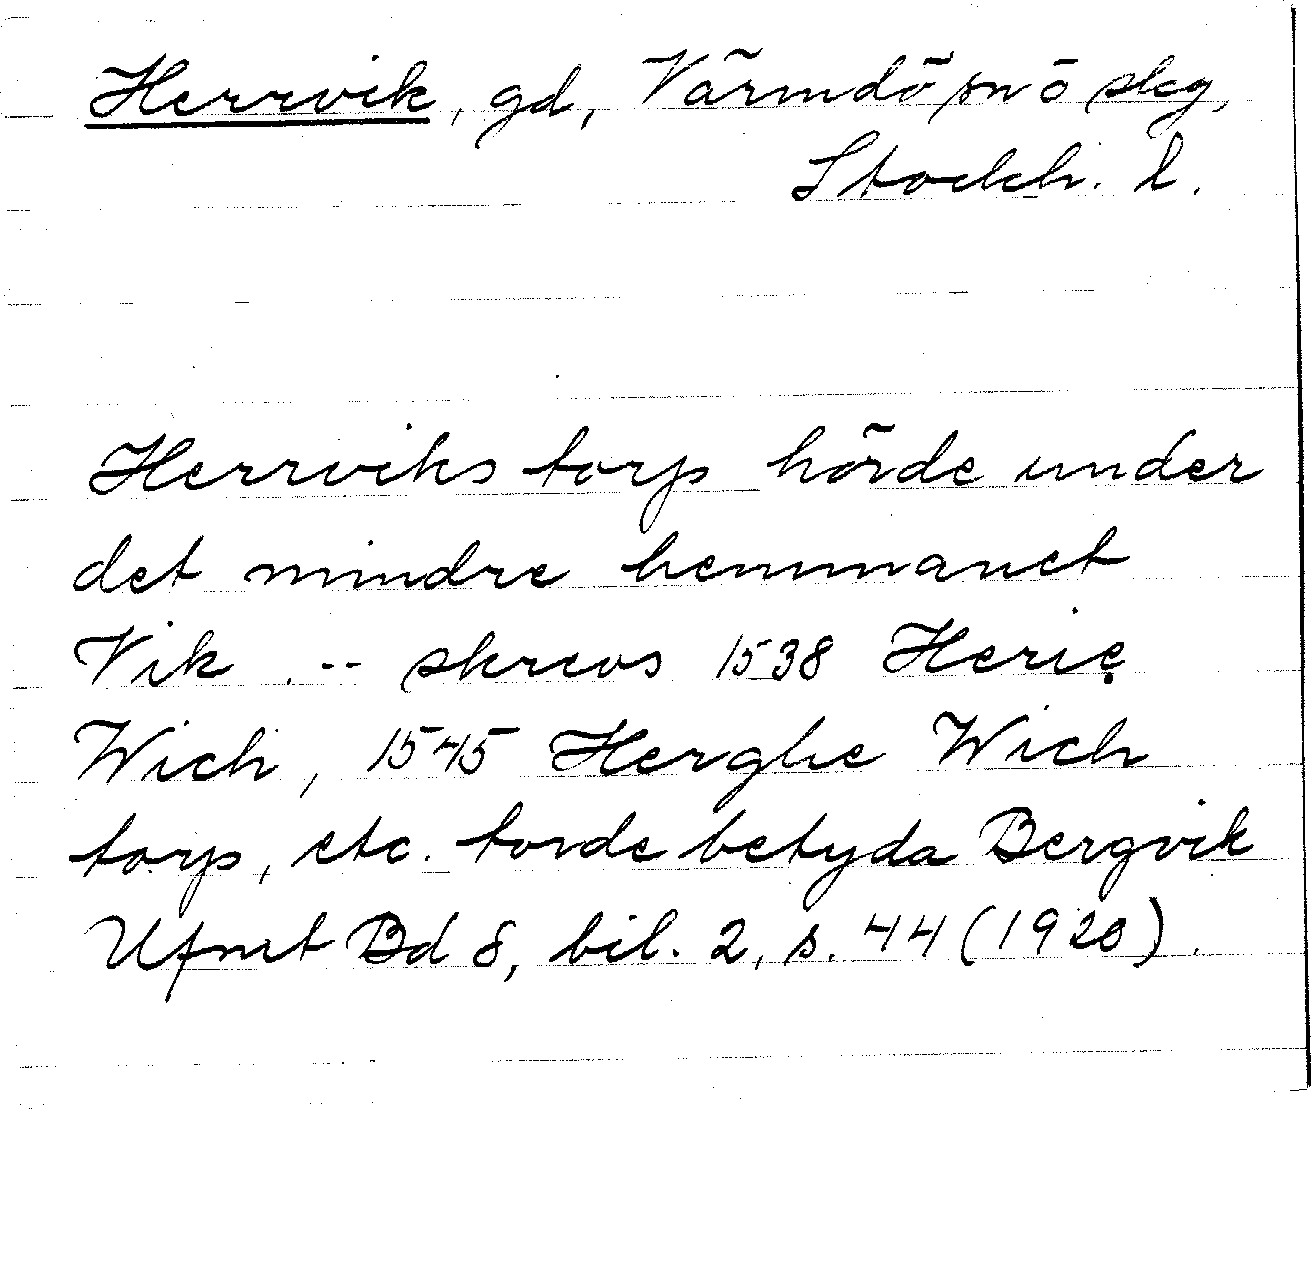 Herrvik, gd, Värmdö sn o skg,
Stockh. l.
Herrviks torp hörde under
det mindre hemmanet
Vik .-- skrevs 1538 Herie
Wich, 1545 Herghe Wich
torp, etc. torde betyda Bergvik
Ufmt Bd 8, bil. 2, s. 44 (1920).